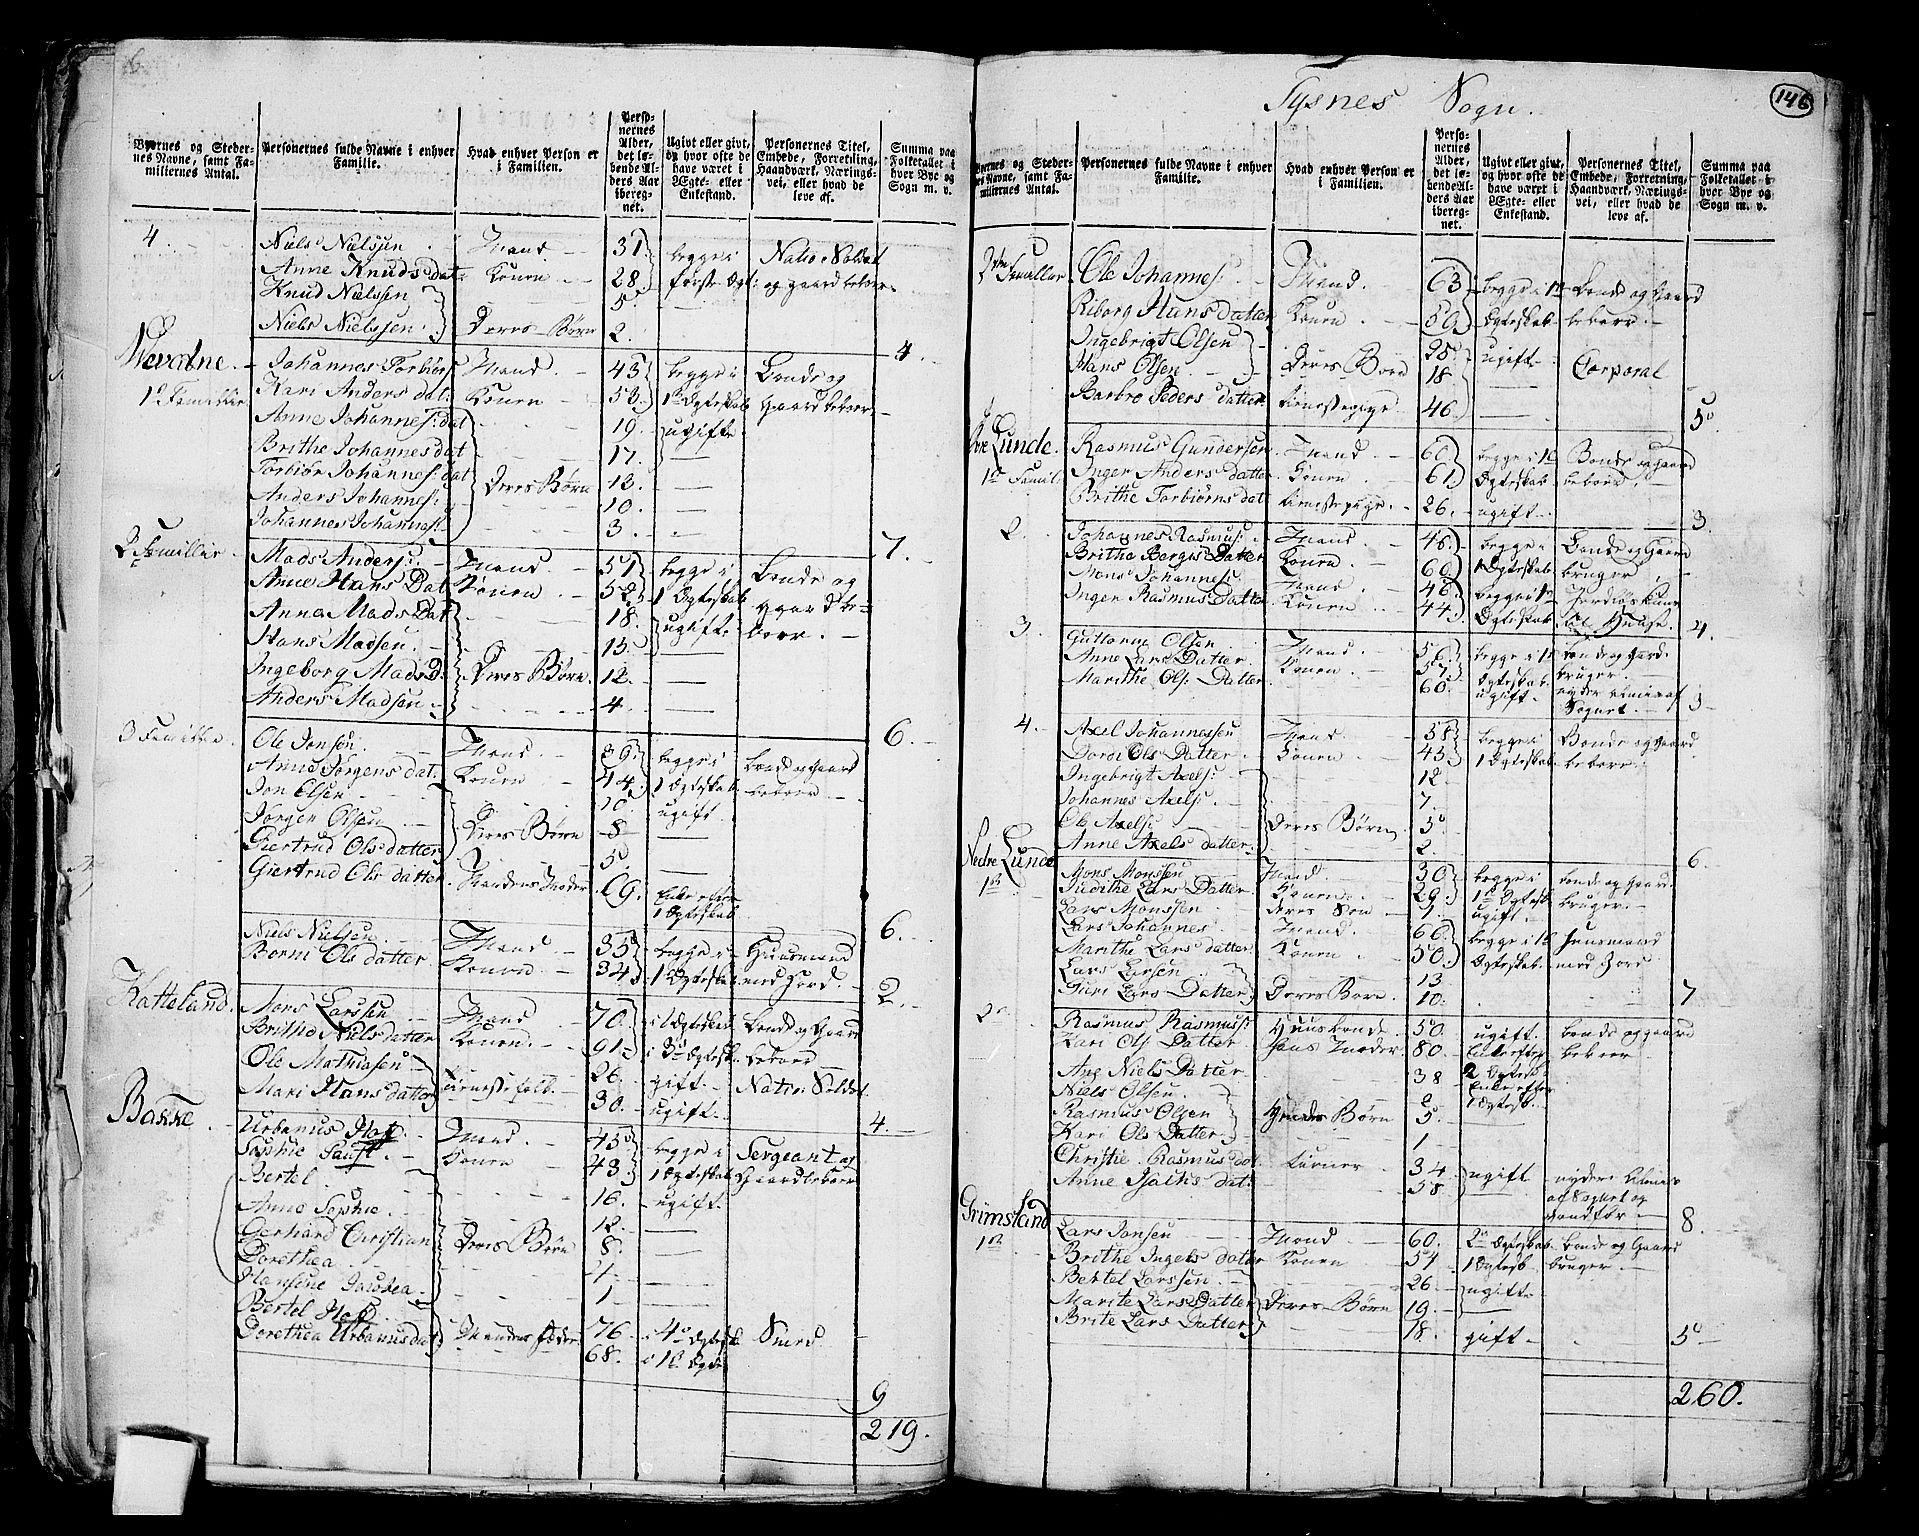 6.
Byernes og Steder-
nes Navne, samt Fa-
miliernes Antal.
Personernes fulde Navne i enhver
Familie.
Hvad enhver Person er
i Familien.
Perso-
nernes
Alder,
det lø-
bende Al-
ders Aar
iberegnet.
Ugivt eller givt,
og hvor ofte de
have været i
Ægte- eller
Enkestand.
Personernes Titel,
Embede, Forretning,
Haandværk, Nærings-
vei, eller hvad de
leve af.
Summa paa
Folketallet i
hver Bye og
Sogn m. v.
4. Niels Nielssen Mand 31 begge i Natio: Soldat
Anne Knuds dat: Konen 28. første Egt: og gaardbeboer
Knud Nielssen 5.
Niels Nielssen Deres Børn 2.
4.
Johannes Torbiørs: Mand 43 begge i Bonde og
1e Familie Kari Anders dat: Konen 53. 1e Egteskab gaardbeboer
Anne Johannes: dat 19. ugifte
Brithe Johannes dat 17.
Torbiør Johannes: dat Deres Børn 12.
Anders Johannes: 10.
Johannes Johannes: 3.
7.
2 Familie Mads Anders: Mand 51 begge i Bonde og
Anne Hans Dat Konen 52 1 Egteskab gaardbe-
Anna Mads Dat 18. ugifte boer.
Hans Madsen 15.
Ingeborg Mads D. Deres Børn 12.
Anders Madsen 4
6.
3 Familie Ole Jonsen Mand 39 begge i bonde og Gaard
Anne Jørgens dat. Konen 44. 1 Egteskab beboer
Jon Olsen 10. ugift
Jørgen Olsen Deres Børn 8
Giertrud Ols datter 5.
Giertrud Ols datter Mandens Moder 69. Enke efter
1 Egteskab
6.
Niels Nielsen Mand 35 begge i Huusmand
Borni Ols datter Konen 34. 1 Egteskab med Jord.
2.
Katteland. Mons Larssen Mand 70. i 1 Egteskab Bonde og Gaard
Brithe Niels datter Konen 61. i 3e Egtesk. beboer
Ole Mathiasen 26. gift Natio: Soldat
Mari Hans datter tienestefolk 30. ugift.
4.
Bakke Urbanus Mand 45 begge i Sergeant og
Sophie Konen 43. 1 Egteskab Gaardbeboer
Bertel 16. ugift.
Anne Sophie 12.
Gerhard Christian Deres Børn 8.
Dorethea 4.
Hansine Jacobea 1
Bertel
Dorethea Urbanus dat Mandens fader 76 i 4e Egtesk Smed
68. i 1e Egte
9
219.
Tysnes Sogn.
146
Byernes og Steder-
nes Navne, samt Fa-
miliernes Antal.
Personernes fulde Navne i enhver
Familie.
Hvad enhver Person er
i Familien.
Perso-
nernes
Alder,
det lø-
bende Al-
ders Aar
iberegnet.
Ugivt eller givt,
og hvor ofte de
have været i
Ægte- eller
Enkestand.
Personernes Titel,
Embede, Forretning,
Haandværk, Nærings-
vei, eller hvad de
leve af.
Summa paa
Folketallet i
hver Bye og
Sogn m. v.
Ole Johannes: Mand. 63 begge i 1te Bonde og Gaard
Riborg Hans datter Konen 59 Egteskab beboer
Ingebrigt Olsen 25 ugift
Hans Olsen Deres Børn 18. Corporal
Barbro Peders datter tienestepige 46.
5
Øvre Lunde Rasmus Gundersen Mand 60 begge i 1te Bonde og Gaard
1te Famil: Inger Anders datter Konen 61 Egteskab beboer
Brithe Torbiørns dat tienestepige 26. ugift
3.
2. Johannes Rasmus: Mand 46. begge i Bonde og Gaard
Britha Datter Konen 60 1 Egteskab bruger
Mons Johannes: Mand 46. begge i 1te
Inger Rasmus Datter Konen 44. Egteskab
4.
3. Guttorm Olsen Mand 56. begge i 1te bonde og Gard
Anne Lars Datter Konen 57. Egteskab bruger.
Marithe Ols: Datter 60. ugift nyder almisse af
Sognet.
3
4. Axel Johannessen Mand 58 begge i Bonde og Gaard
Dordi Ols Datter Konen 45 1 Egteskab beboer
Ingebrigt Axels: 12.
Johannes Axels: 7.
Ole Axels: Deres Børn 5
Anne Axels datter 2
6.
Nedre Lunde Mons Monssen Mand 30 begge i bonde og Gaard
1te Lars Datter Konen 29. 1te Egtesk. bruger.
Lars Monssen Deres Søn 1. ugift
Lars Johannes Mand 66. begge i 1te huusmand
Marithe Lars datter Konen 50. Egteskab med Jord
Lars Larsen 13
Guri Lars Datter Deres Børn 10.
7
2 Rasmus Rasmus: Huusbonde 50. ugift bonde og gaard
Kari Ols Datter Hans Moder 80. Enke efter beboer
Ane Niels Datter 38 2 Egtesk. Enke efter
Niels Olsen 8 1 Egtesk.
Rasmus Olsen Hendes Børn 5
Kari Ols Datter 1
Christie Rasmus dat. tiener 34 ugift nyder Almisse
Anne Isachs dat: 58 af Sognet og
8
Grimsland Lars Jonsen Mand 60. 2 Egteskab bonde og Gaard
1te Brithe Ingels datter Konen 54 1 Egtesk. bruger
Bertel Larssen 26 ugifte
Marite Lars Datter Deres Børn 19.
Brite Lars Datter 18. gift
5
260.